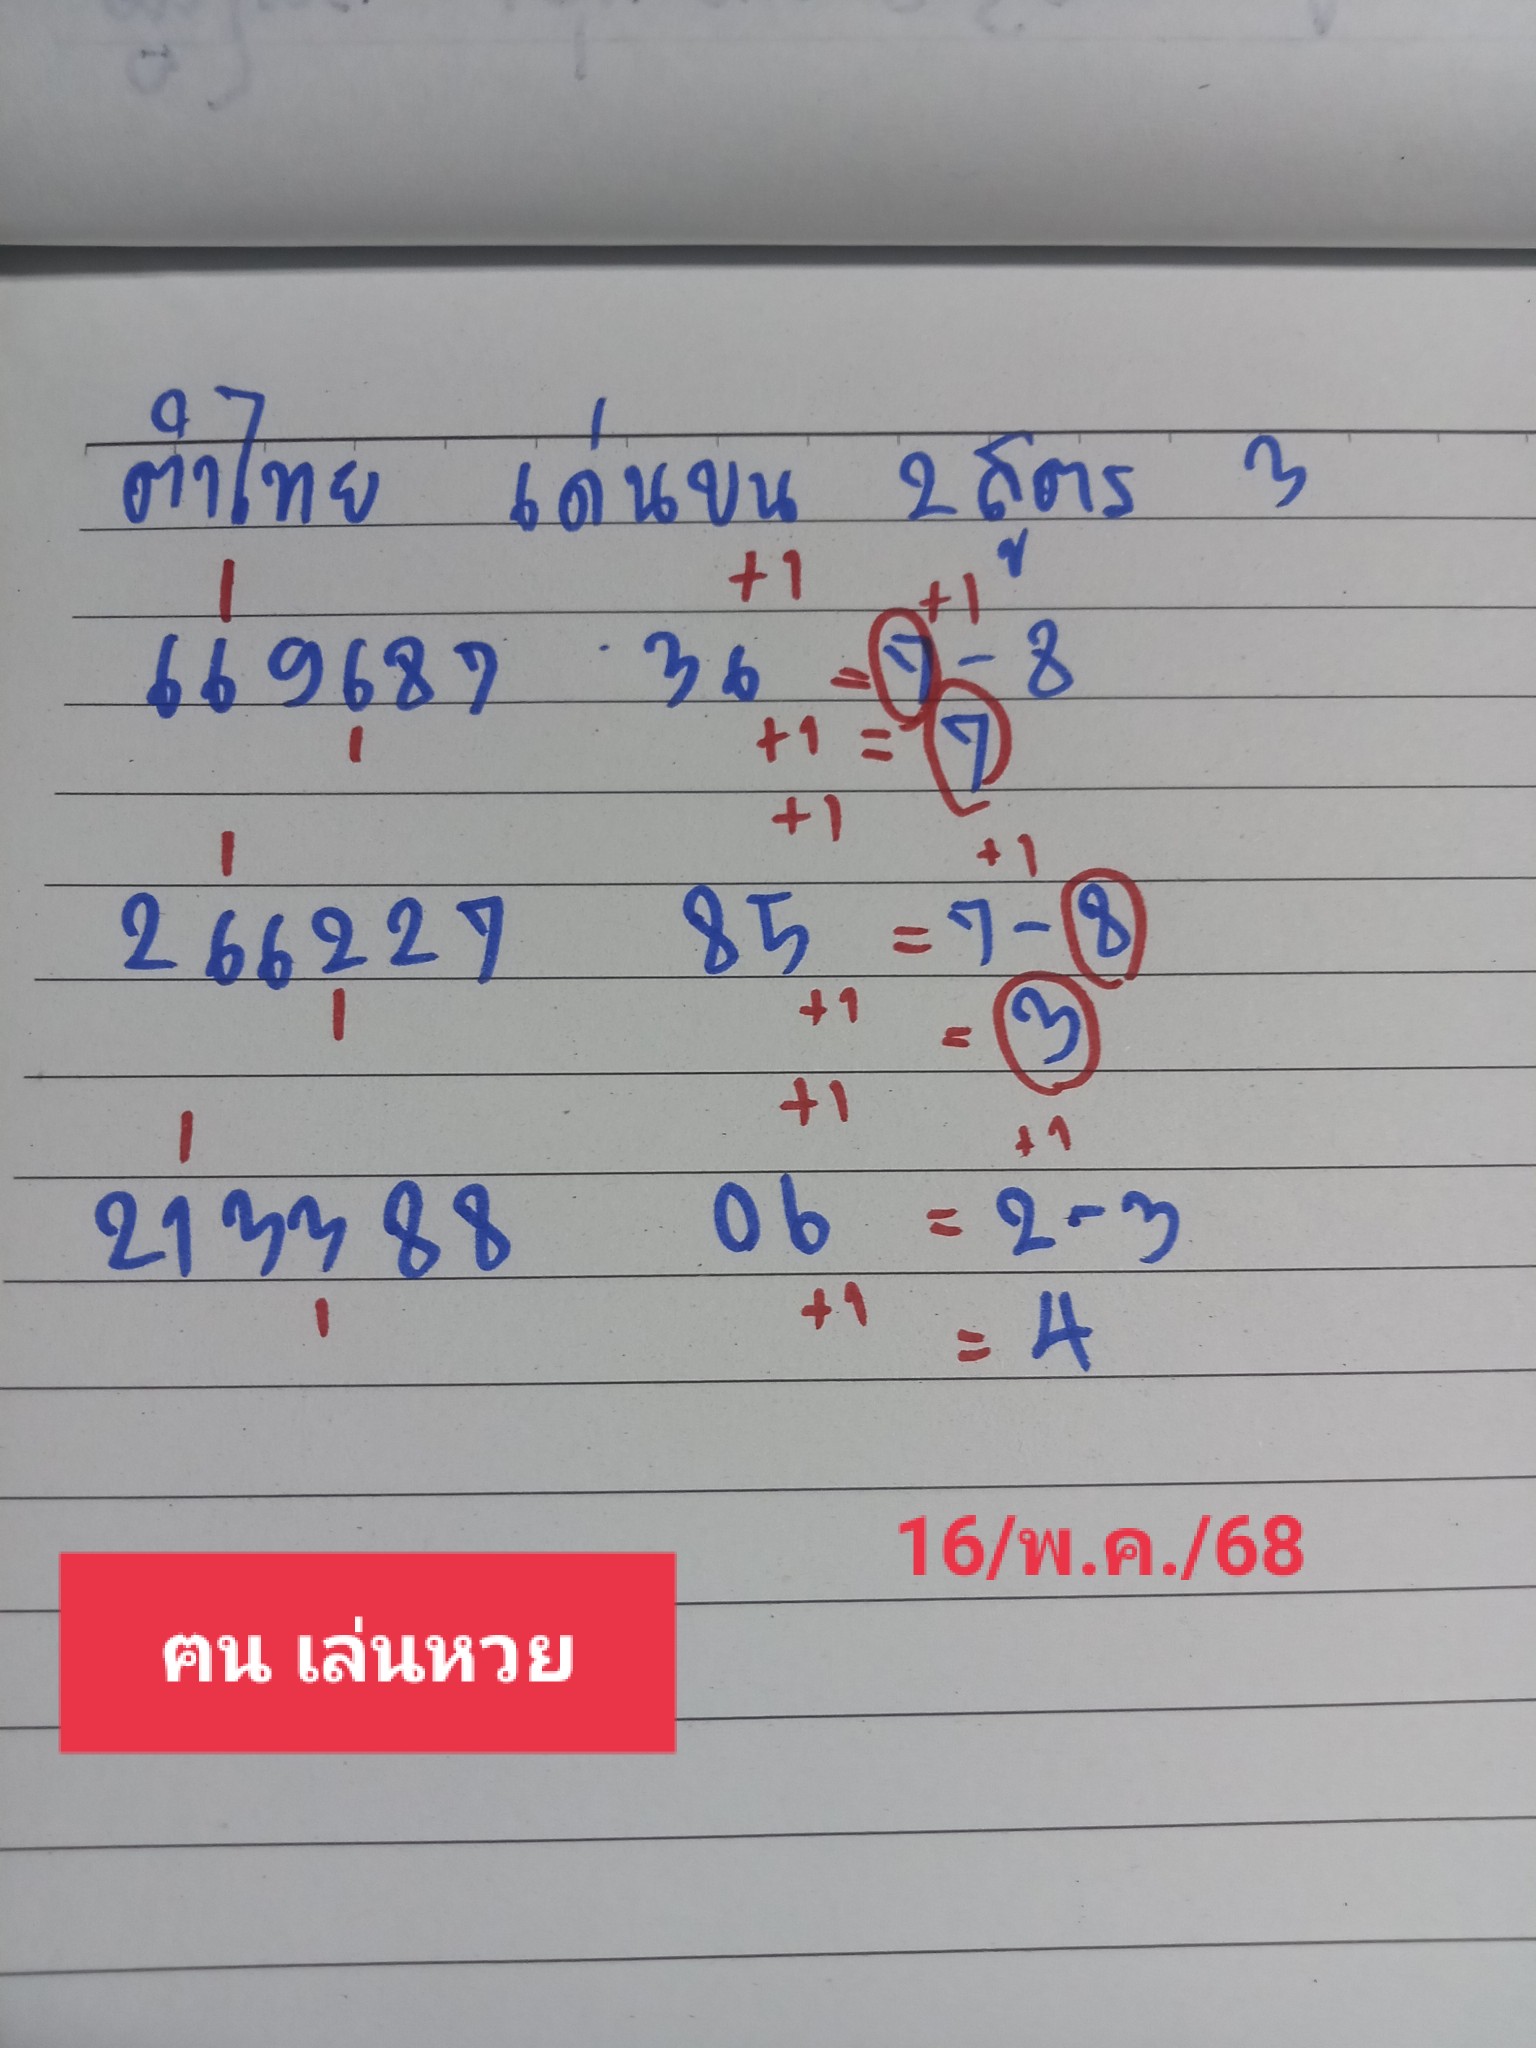 ตำไทย เด่นบน 2 สูตร 3
1 +1 +1
669687 36 = 7 - 8
1 +1 = 7
+1
1 +1
266227 85 = 7 - 8
1 +1 = 3
+1
1 +1
213388 06 = 2 - 3
1 +1 = 4
16/พ.ค./68
ฅน เล่นหวย